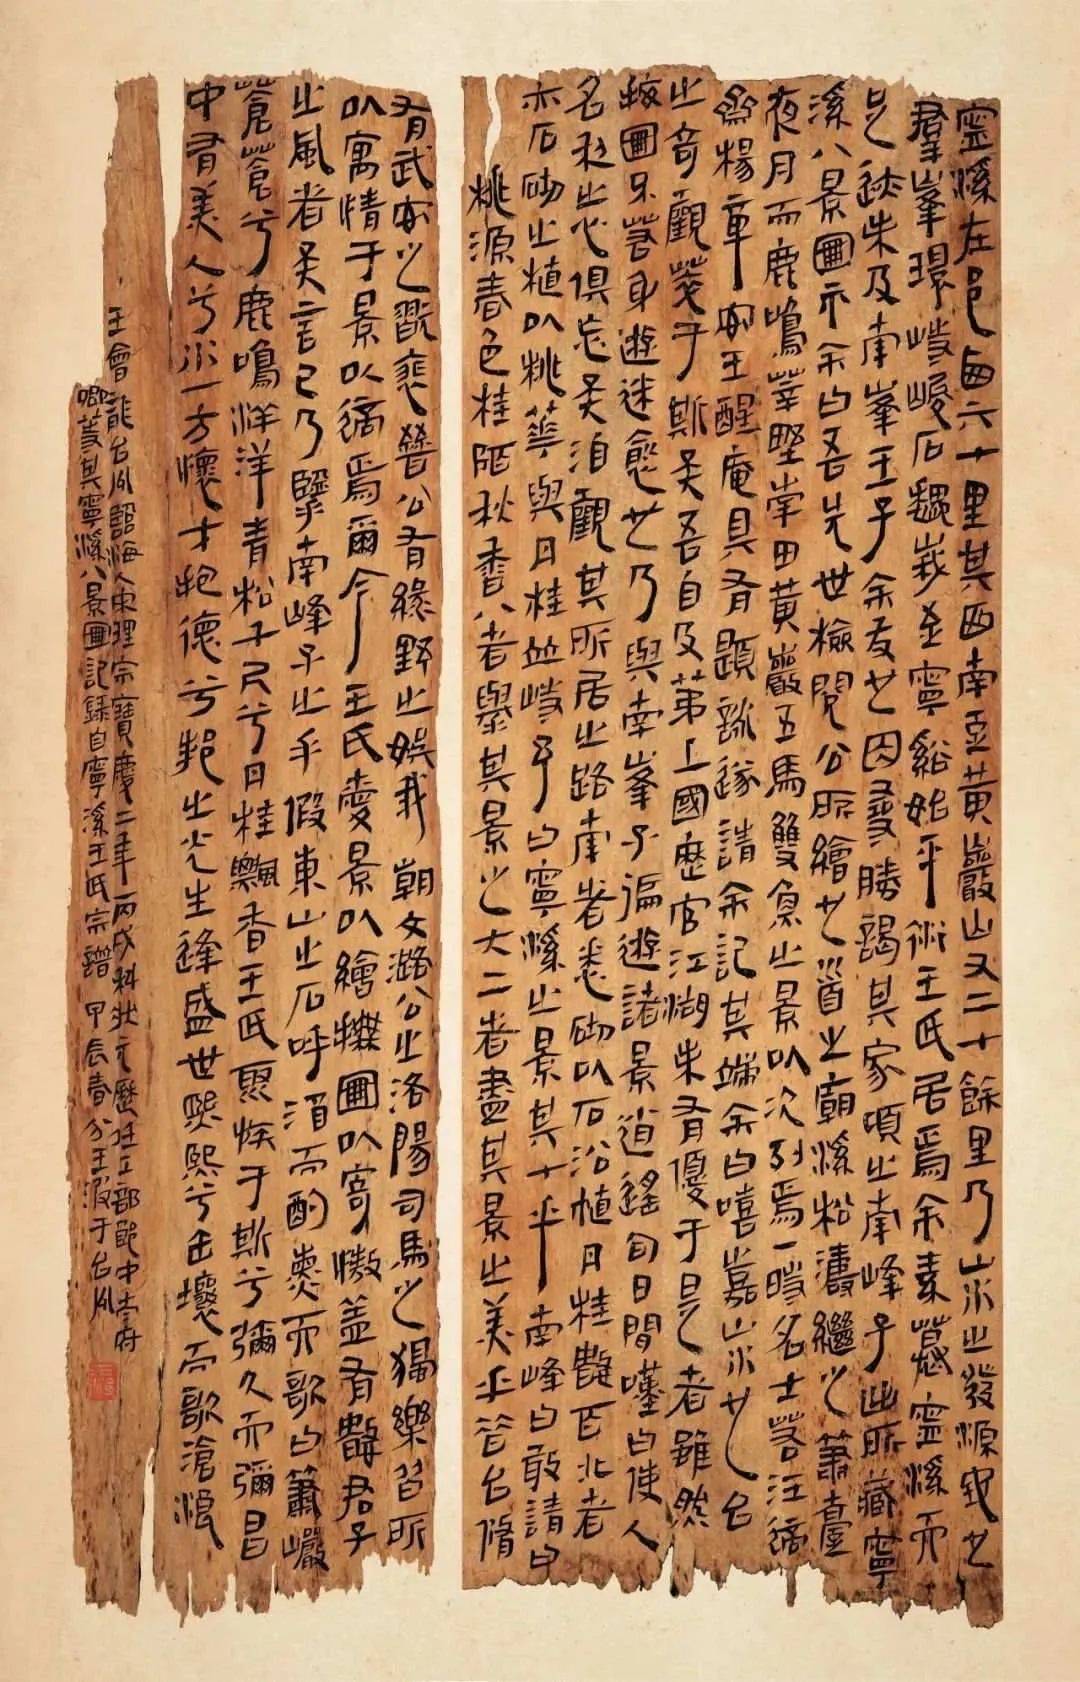 寧溪在邑西六十里其西南至黄巖山又二十餘里乃山水之發源也
羣峯環峙峻石巍峩至寧谿始平衍王氏居焉余素慕寧溪而
及南峯王子余友也因登勝謁其家頃之南峰子出所藏寧
溪八景圖示余曰吾先世檢閱公所繪也首之廟溪松濤繼之簫臺
夜月而鹿鳴莘野掌田黄巖五馬雙魚之景以次列焉一時名士若汪
楊章安王醒庵具有題詠遂請余記其端余曰嘻嘉山水也台
之奇觀萃于斯矣吾自及第上國歷官江湖未有優于是者雖然
按圖不若身遊迷愈也乃與南峯子遍遊諸景逍遙旬日間嘆曰使人
名利之心俱忘矣洎觀其所居之路南者悉砌以石沿植丹桂數百北者
亦石砌之植以桃華與丹桂並峙予曰寧溪之景其十乎南峰曰敢請曰
桃源春色桂陌秋香八者舉其景之大二者盡其景之美
有武安之 裴晉公有緑野之娱我朝文潞公之洛陽司馬之獨樂皆所
以寓情于景以適焉爾今王氏愛景以繪 圖以寄 蓋有 君子
之風者矣言已乃 南峰子之手假東山之石呼酒而酌 而歌曰簫巖
蒼蒼兮鹿鳴洋洋青松千尺兮丹桂飄香王氏聚族于斯兮彌久而彌昌
中有美人兮水一方懷才抱德兮 之光生逢盛世熙熙兮擊壤而歌滄浪
王會龍台州臨海人宋理宗寶慶二年丙戌科狀元歷任工部郎中 府
卿 其寧溪八景圖記録自寧溪王氏宗譜甲辰春分王 于台州